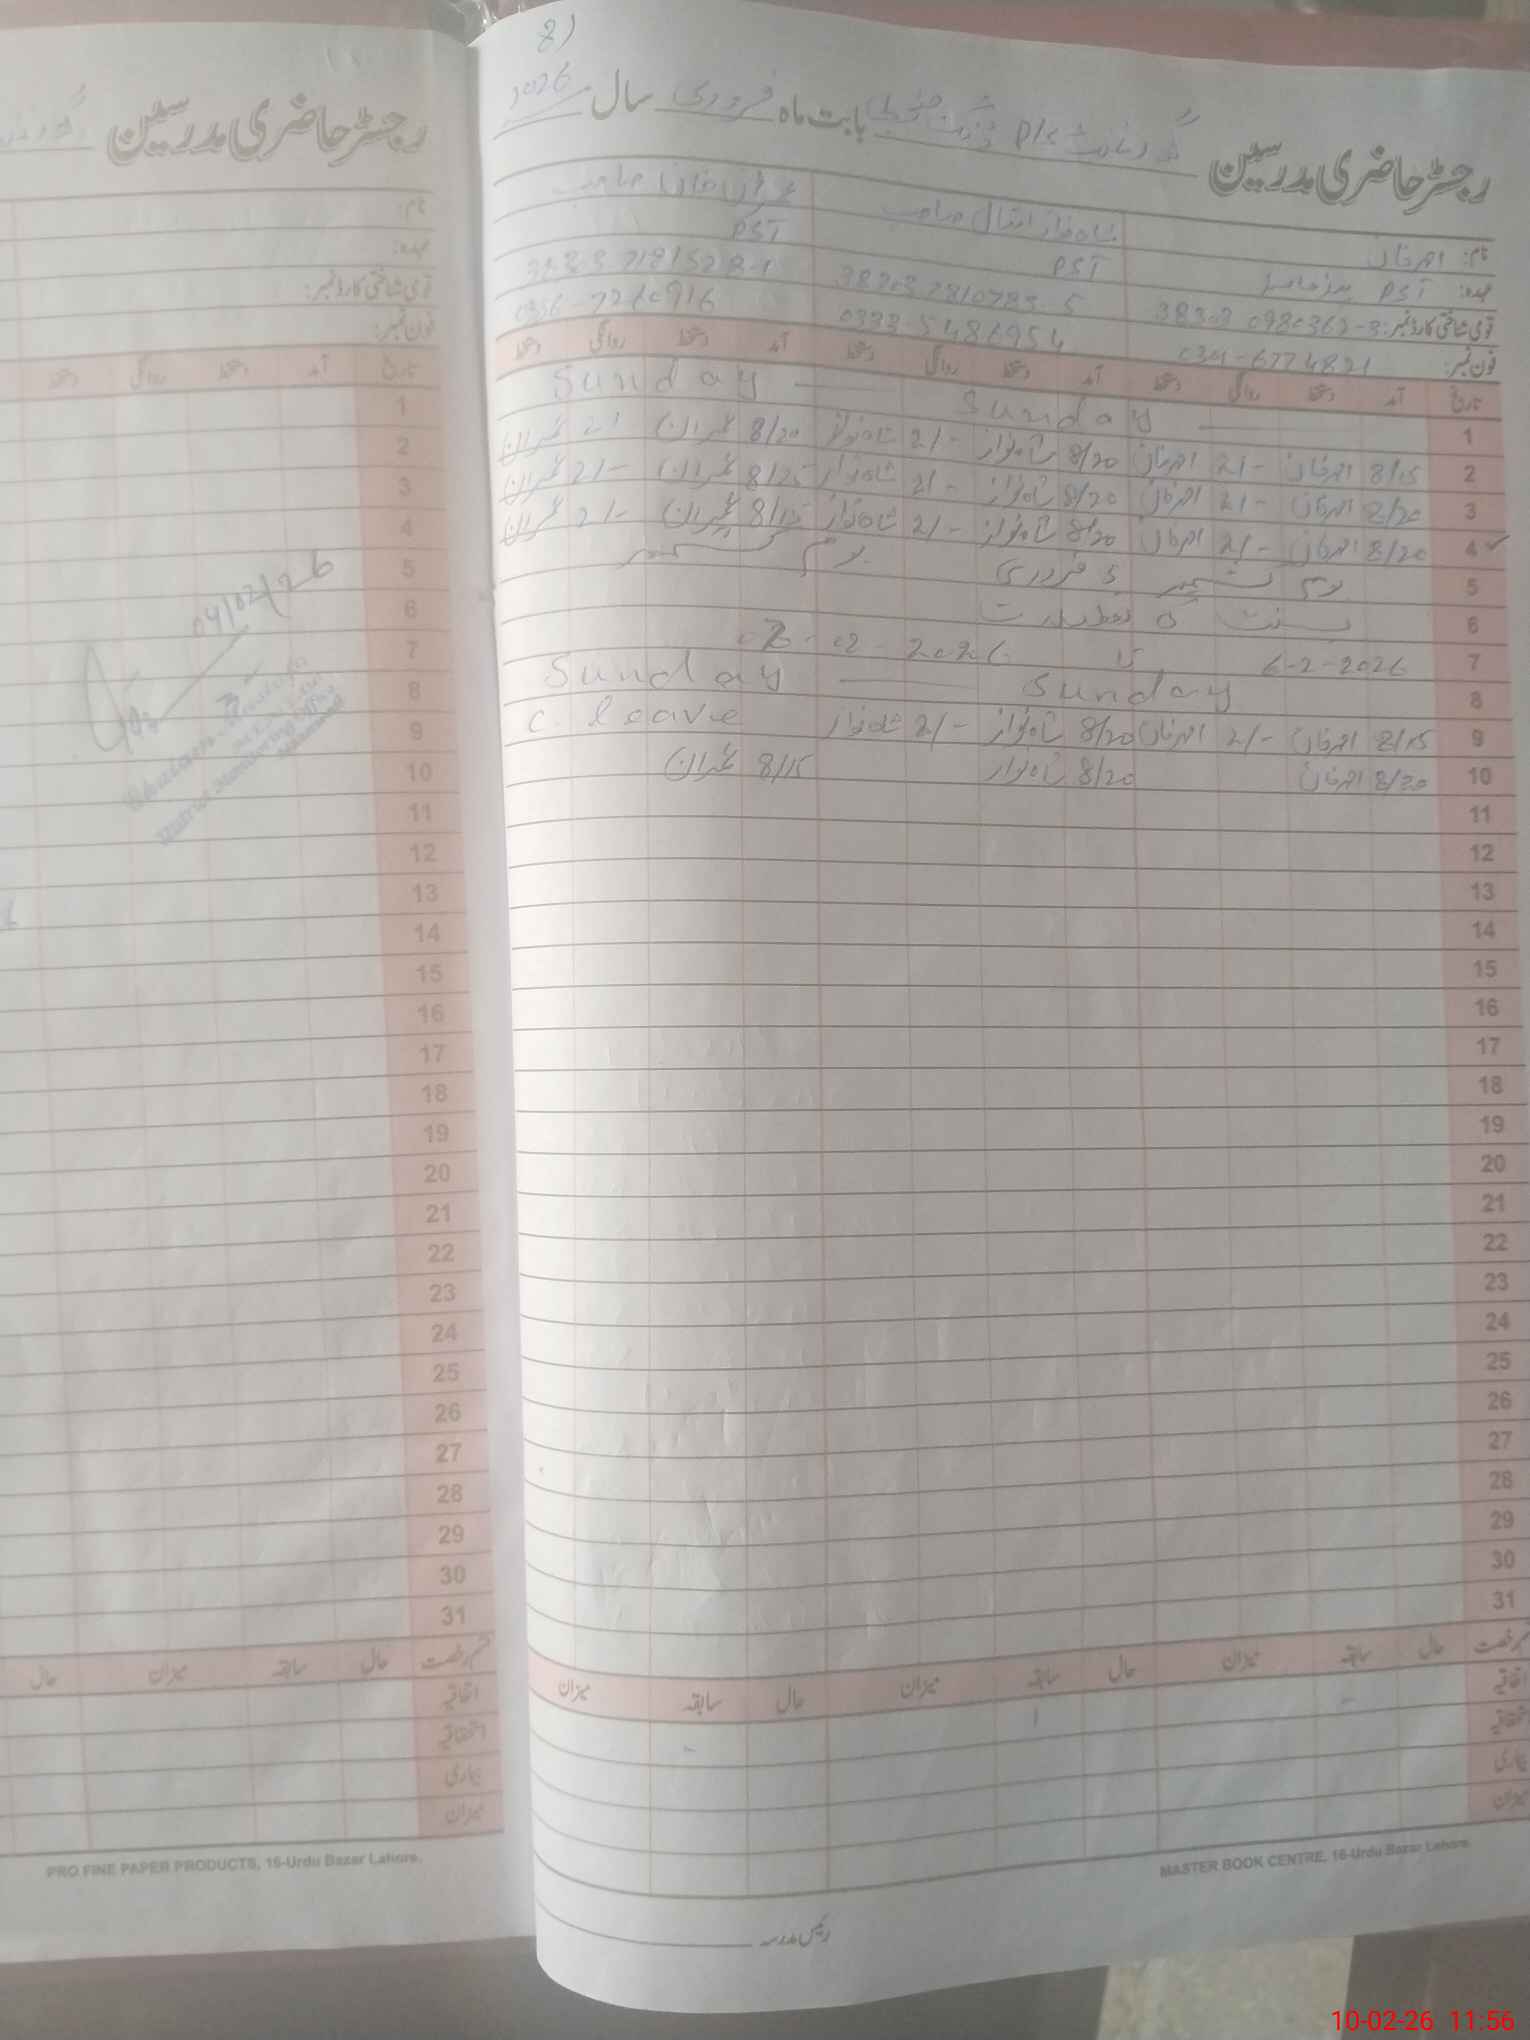 8)
رجسٹر حاضری مدرسین گورنمنٹ P/S بابت ماہ فروری سال 2026
نام: امرخان شاہ نواز اقبال صاحب عمران خان صاحب
عہدہ: PST PST PST
قومی شناختی کارڈ نمبر: 38303
فون نمبر: 0333-5486954
تاریخ آمد دستخط روانگی دستخط آمد دستخط روانگی دستخط آمد دستخط روانگی دستخط
1 Sunday Sunday
2 8/15 امرخان 2/- امرخان 8/20 شاہ نواز 2/- شاہ نواز 8/20 عمران 2/- عمران
3 8/20 امرخان 2/- امرخان 8/20 شاہ نواز 2/- شاہ نواز 8/25 عمران 2/- عمران
4 8/20 امرخان 2/- امرخان 8/20 شاہ نواز 2/- شاہ نواز 8/15 عمران 2/- عمران
5 یوم کشمیر 5 فروری یوم کشمیر
6 بسنت کی تعطیلات
7 6-2-2026 تا 02-2026
8 Sunday Sunday
9 8/15 امرخان 2/- امرخان 8/20 شاہ نواز 2/- شاہ نواز C. leave
10 8/20 امرخان 8/20 شاہ نواز 8/15 عمران
11
12
13
14
15
16
17
18
19
20
21
22
23
24
25
26
27
28
29
30
31
قسم رخصت حال سابقہ میزان حال سابقہ میزان حال سابقہ میزان
اتفاقیہ
استحقاقیہ
بیماری
میزان
MASTER BOOK CENTRE, 16-Urdu Bazar Lahore.
رئیس مدرسہ
رجسٹر حاضری مدرسین
نام:
عہدہ:
قومی شناختی کارڈ نمبر:
فون نمبر:
تاریخ آمد دستخط روانگی دستخط
1
2
3
4
5
6
7
8
9
10
11
12
13
14
15
16
17
18
19
20
21
22
23
24
25
26
27
28
29
30
31
04/02/26
District Monitoring Officer
قسم رخصت حال سابقہ میزان حال
اتفاقیہ
استحقاقیہ
بیماری
میزان
PRO FINE PAPER PRODUCTS, 16-Urdu Bazar Lahore.
10-02-26 11:56